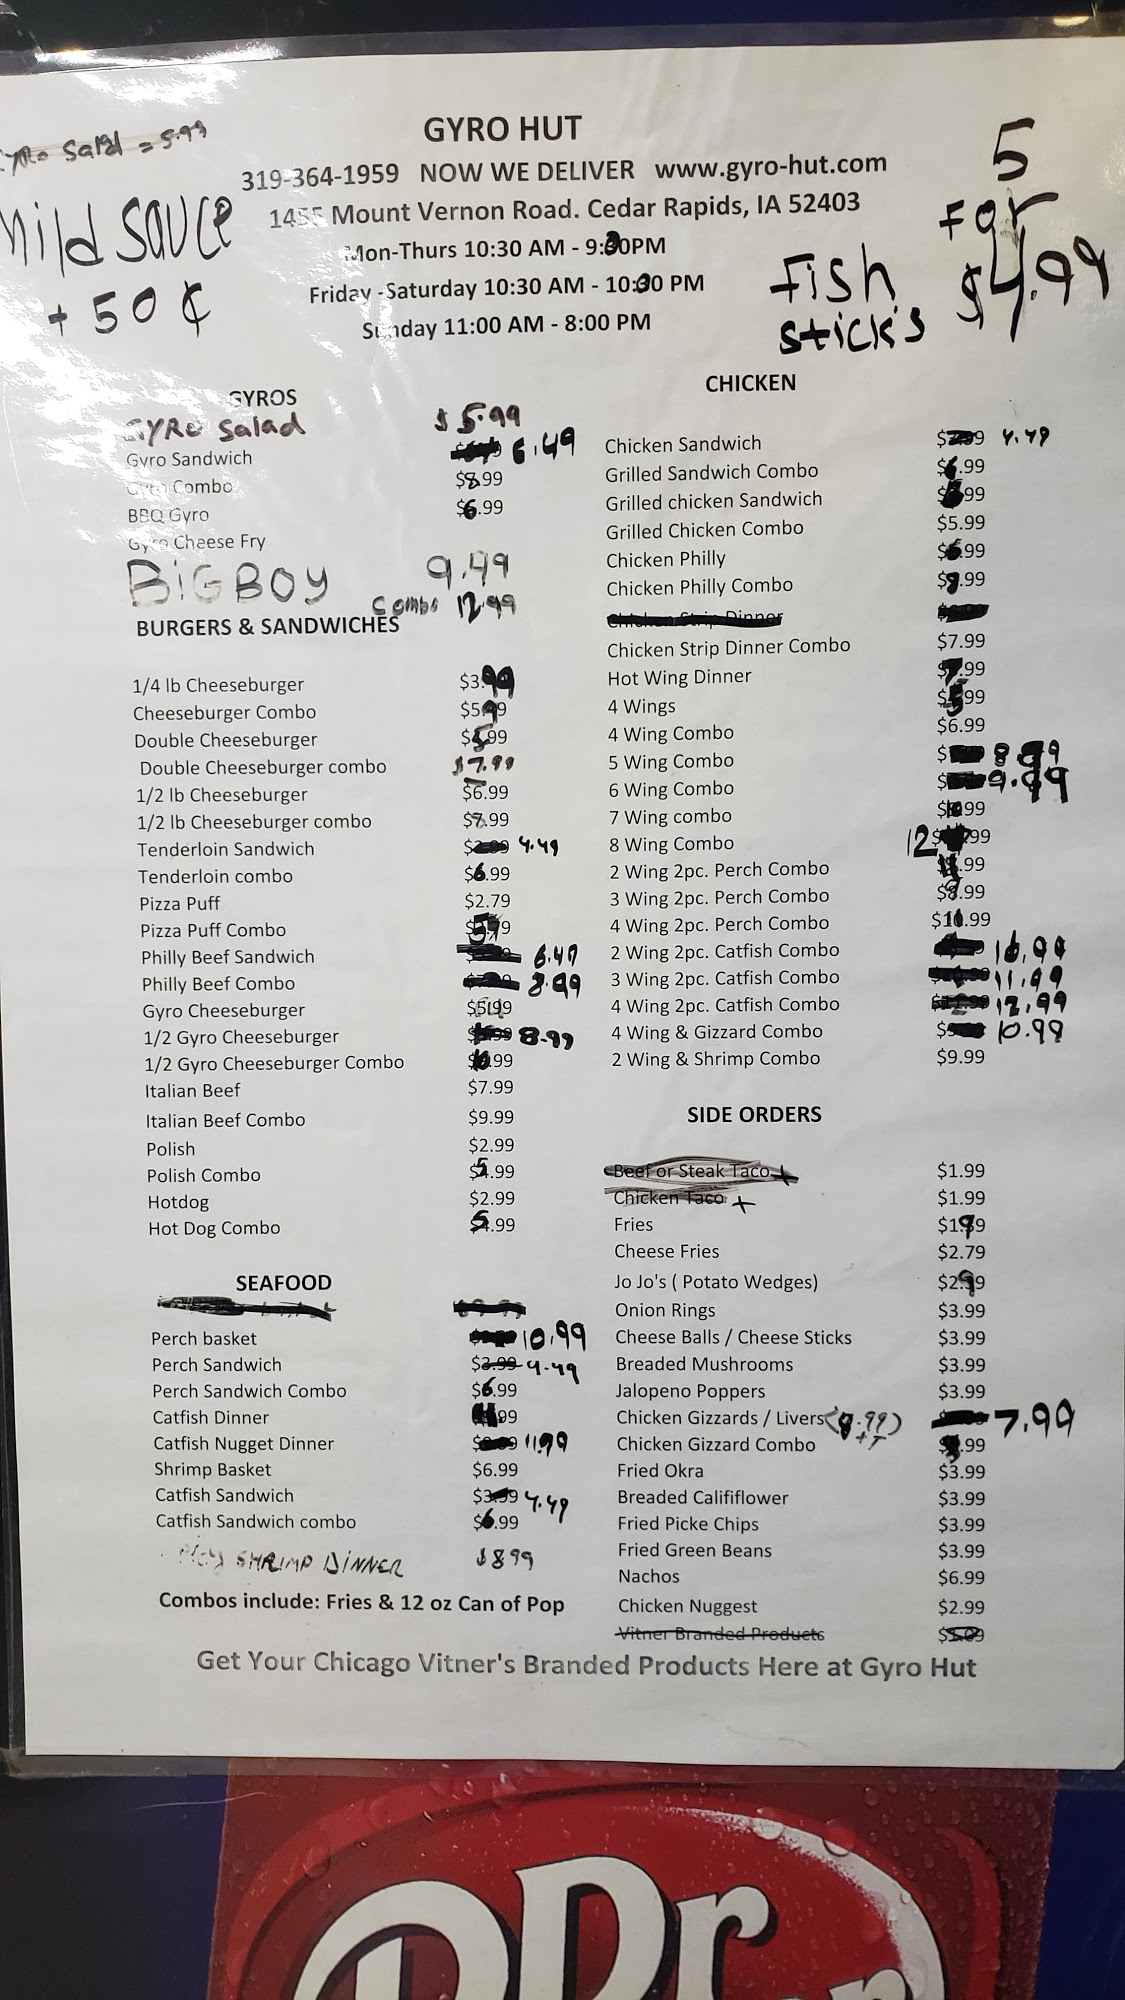 Gyro Salad = 5.99
Mild Sauce
+ 50 ¢
5
For
$4.99
Fish
Stick's
GYRO HUT
319-364-1959 NOW WE DELIVER www.gyro-hut.com
1455 Mount Vernon Road. Cedar Rapids, IA 52403
Mon-Thurs 10:30 AM - 9:00PM
Friday -Saturday 10:30 AM - 10:00 PM
Sunday 11:00 AM - 8:00 PM
GYROS
GYRO Salad $5.99
Gyro Sandwich 6.49
Gyro Combo $8.99
BBQ Gyro $6.99
Gyro Cheese Fry
BIGBOY 9.49
Combo 12.99
BURGERS & SANDWICHES
1/4 lb Cheeseburger $3.99
Cheeseburger Combo $5.99
Double Cheeseburger $5.99
Double Cheeseburger combo $7.99
1/2 lb Cheeseburger $6.99
1/2 lb Cheeseburger combo $7.99
Tenderloin Sandwich 4.49
Tenderloin combo $6.99
Pizza Puff $2.79
Pizza Puff Combo
Philly Beef Sandwich 6.49
Philly Beef Combo 8.99
Gyro Cheeseburger
1/2 Gyro Cheeseburger 8.99
1/2 Gyro Cheeseburger Combo
Italian Beef $7.99
Italian Beef Combo $9.99
Polish $2.99
Polish Combo
Hotdog $2.99
Hot Dog Combo
SEAFOOD
Perch basket 10.99
Perch Sandwich $3.99 4.49
Perch Sandwich Combo $6.99
Catfish Dinner
Catfish Nugget Dinner 11.99
Shrimp Basket $6.99
Catfish Sandwich 4.49
Catfish Sandwich combo $6.99
SHRIMP DINNER $8.99
Combos include: Fries & 12 oz Can of Pop
CHICKEN
Chicken Sandwich 4.49
Grilled Sandwich Combo $6.99
Grilled chicken Sandwich
Grilled Chicken Combo $5.99
Chicken Philly $6.99
Chicken Philly Combo $9.99
Chicken Strip Dinner
Chicken Strip Dinner Combo $7.99
Hot Wing Dinner $7.99
4 Wings $5.99
4 Wing Combo $6.99
5 Wing Combo 8.99
6 Wing Combo 9.99
7 Wing combo
8 Wing Combo 12
2 Wing 2pc. Perch Combo
3 Wing 2pc. Perch Combo
4 Wing 2pc. Perch Combo
2 Wing 2pc. Catfish Combo 10.99
3 Wing 2pc. Catfish Combo 11.99
4 Wing 2pc. Catfish Combo 12.99
4 Wing & Gizzard Combo 10.99
2 Wing & Shrimp Combo $9.99
SIDE ORDERS
Beef or Steak Taco $1.99
Chicken Taco $1.99
Fries $1.99
Cheese Fries $2.79
Jo Jo's ( Potato Wedges) $2.99
Onion Rings $3.99
Cheese Balls / Cheese Sticks $3.99
Breaded Mushrooms $3.99
Jalopeno Poppers $3.99
Chicken Gizzards / Livers (8.99) 7.99
Chicken Gizzard Combo
Fried Okra $3.99
Breaded Calififlower $3.99
Fried Picke Chips $3.99
Fried Green Beans $3.99
Nachos $6.99
Chicken Nuggest $2.99
Vitner Branded Products
Get Your Chicago Vitner's Branded Products Here at Gyro Hut
Dr